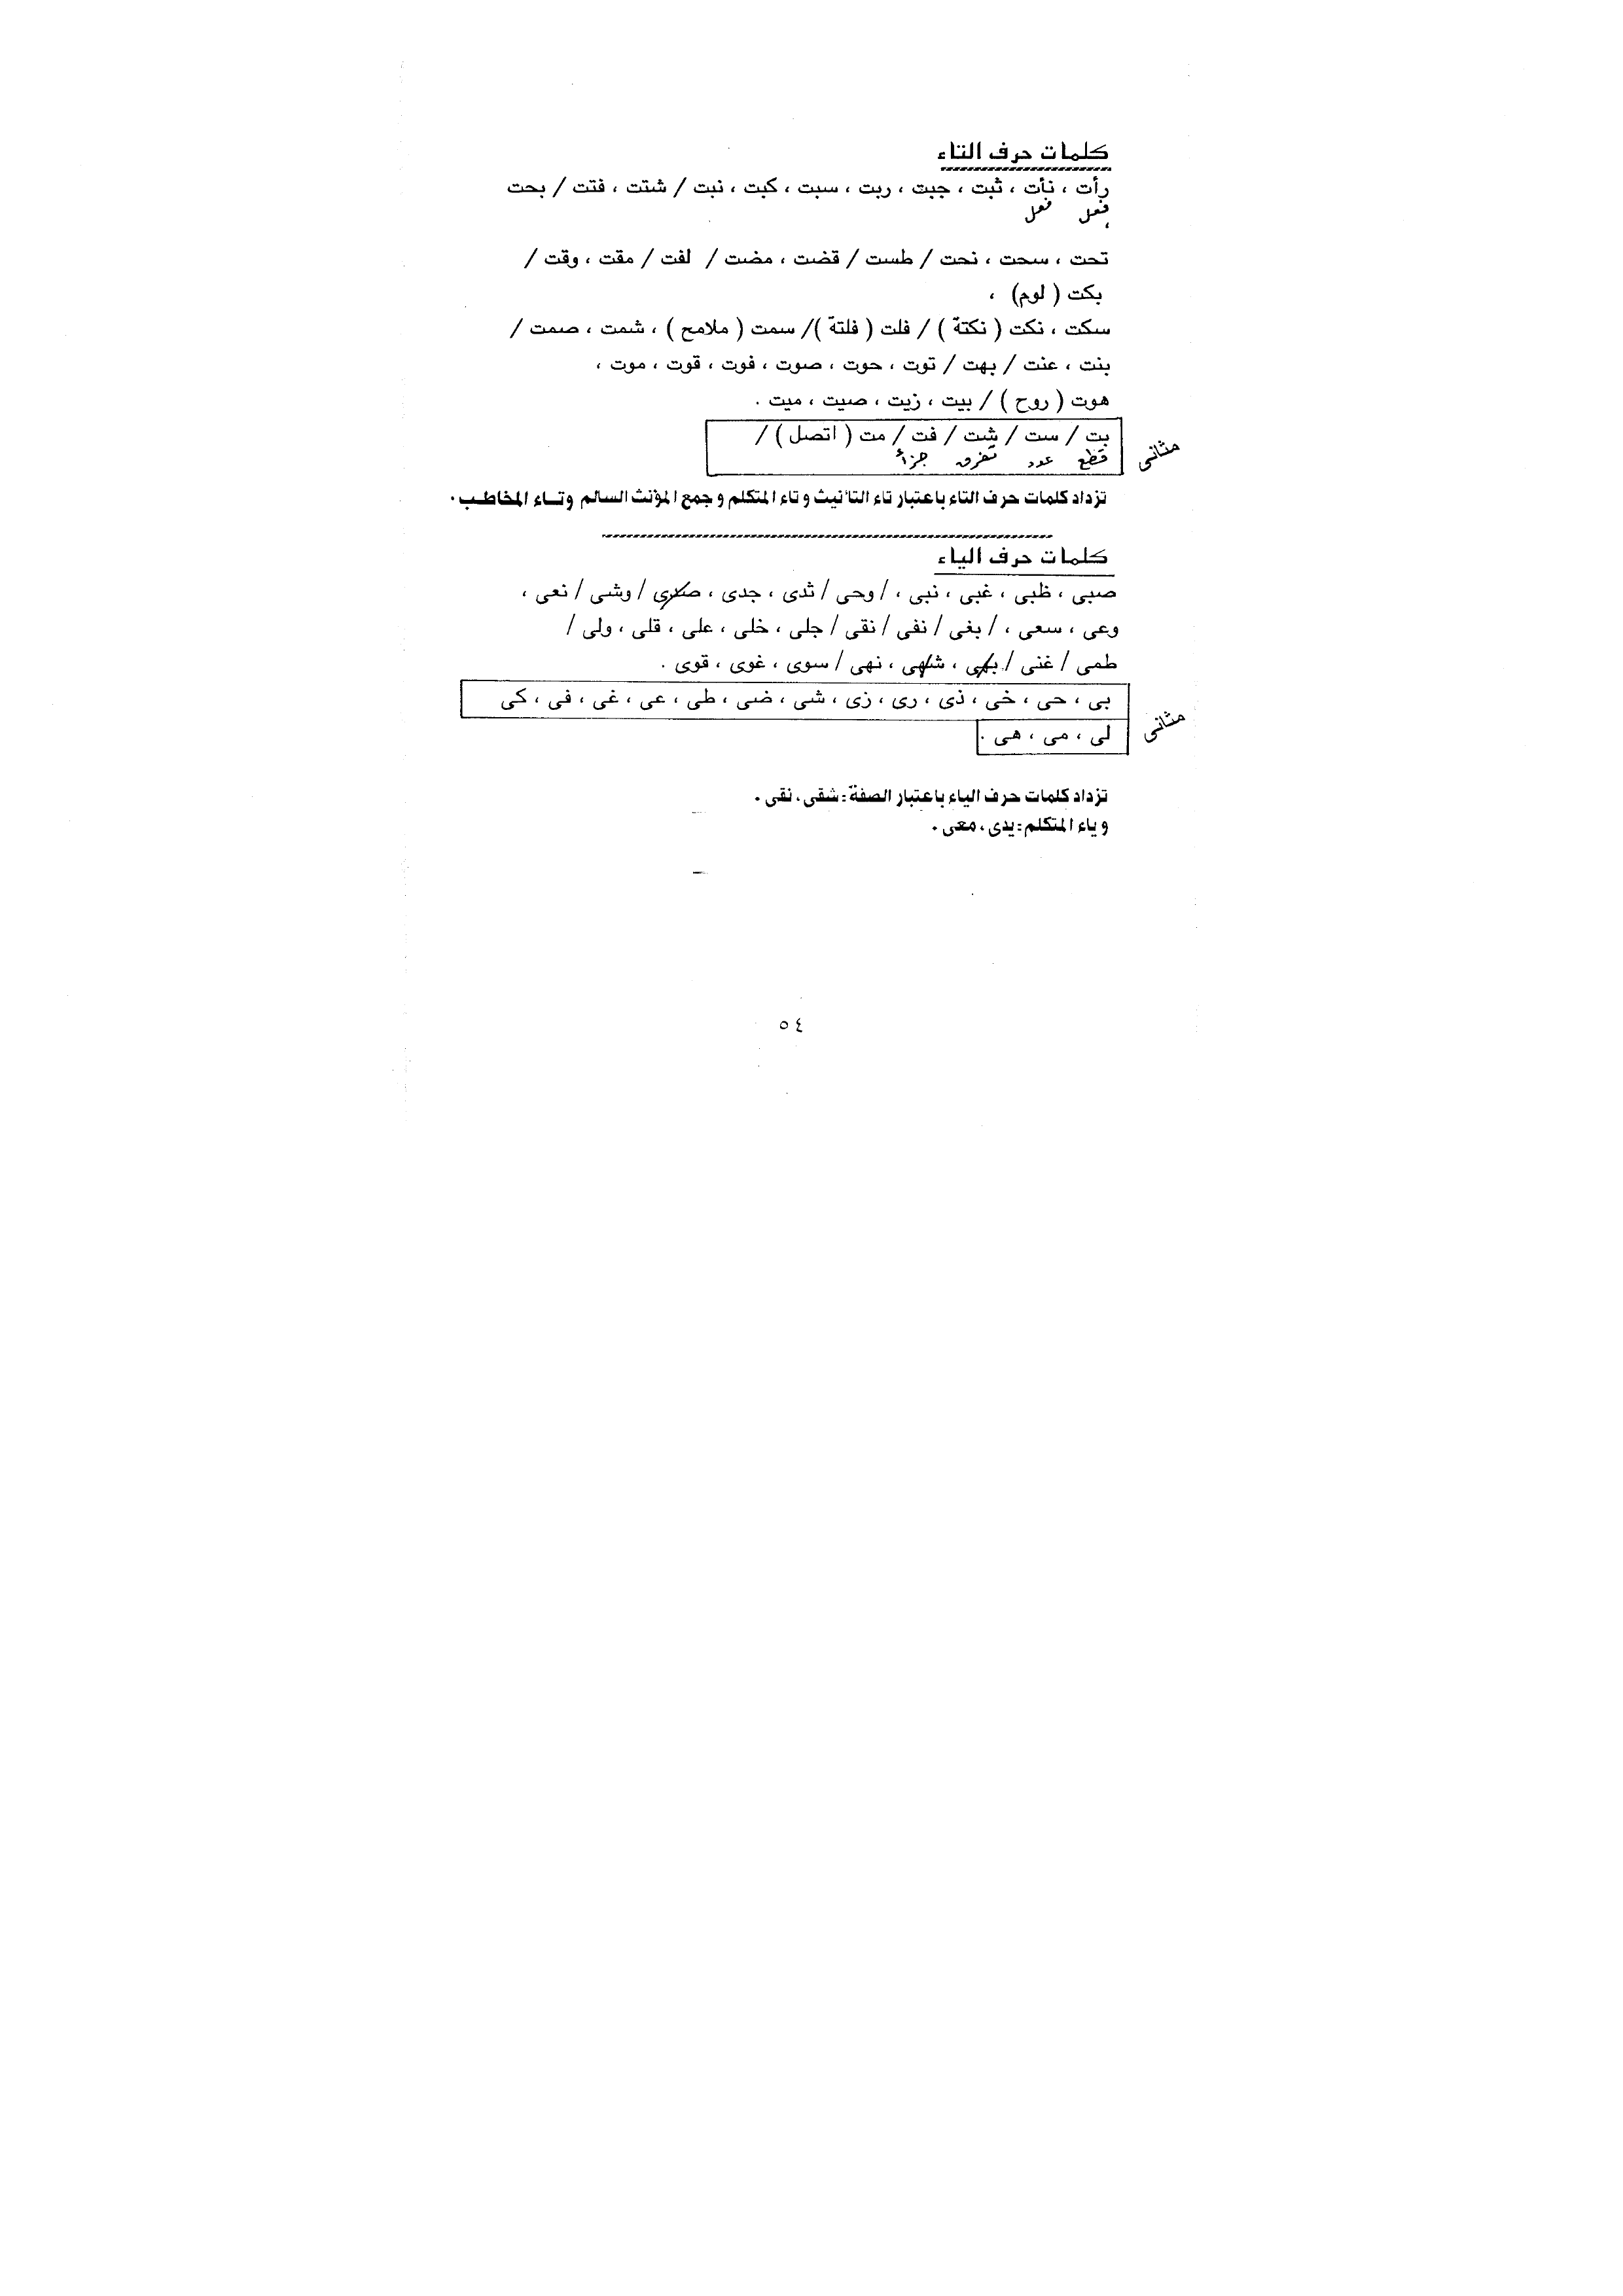 كلمات حرف التاء
رأت ، نأت ، ثبت ، جبت ، ربت ، سبت ، كبت ، نبت / شتت ، فتت / بحت
فعل فعل
تحت ، سحت ، نحت / طست / قضت ، مضت / لفت / مقت ، وقت /
بكت ( لوم) ،
سكت ، نكت ( نكتة ) / فلت ( فلتة )/ سمت ( ملامح ) ، شمت ، صمت /
بنت ، عنت / بهت / توت ، حوت ، صوت ، فوت ، قوت ، موت ،
هوت ( روح ) / بيت ، زيت ، صيت ، ميت .
بت / ست / شت / فت / مت ( اتصل ) /
مثانى
قطع عدد تفرق جزأ
تزداد كلمات حرف التاء باعتبار تاء التأنيث وتاء المتكلم وجمع المؤنث السالم وتاء المخاطب .
كلمات حرف الياء
صبى ، ظبى ، غبى ، نبى ، / وحى / ثدى ، جدى ، / وشى / نعى ،
وعى ، سعى ، / بغى / نفى / نقى / جلى ، خلى ، على ، قلى ، ولى /
طمى / غنى / بهى ، شهى ، نهى / سوى ، غوى ، قوى .
بى ، حى ، خى ، ذى ، رى ، زى ، شى ، ضى ، طى ، عى ، غى ، فى ، كى
مثانى
لى ، مى ، هى .
تزداد كلمات حرف الياء باعتبار الصفة : شقى ، نقى .
وياء المتكلم : يدى ، معى .
٥٤